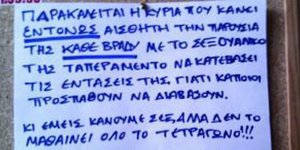 ΠΑΡΑΚΑΛΕΙΤΑΙ Η ΚΥΡΙΑ ΠΟΥ ΚΑΝΕΙ
ΕΝΤΟΝΩΣ ΑΙΣΘΗΤΗ ΤΗΝ ΠΑΡΟΥΣΙΑ
ΤΗΣ ΚΑΘΕ ΒΡΑΔΥ ΜΕ ΤΟ ΣΕΞΟΥΑΛΙΚΟ
ΤΗΣ ΤΑΠΕΡΑΜΕΝΤΟ ΝΑ ΚΑΤΕΒΑΣΕΙ
ΤΙΣ ΕΝΤΑΣΕΙΣ ΤΗΣ, ΓΙΑΤΙ ΚΑΠΟΙΟΙ
ΠΡΟΣΠΑΘΟΥΝ ΝΑ ΔΙΑΒΑΣΟΥΝ.
ΚΙ ΕΜΕΙΣ ΚΑΝΟΥΜΕ ΣΕΞ, ΑΛΛΑ ΔΕΝ ΤΟ
ΜΑΘΑΙΝΕΙ ΟΛΟ ΤΟ ΤΕΤΡΑΓΩΝΟ!!!